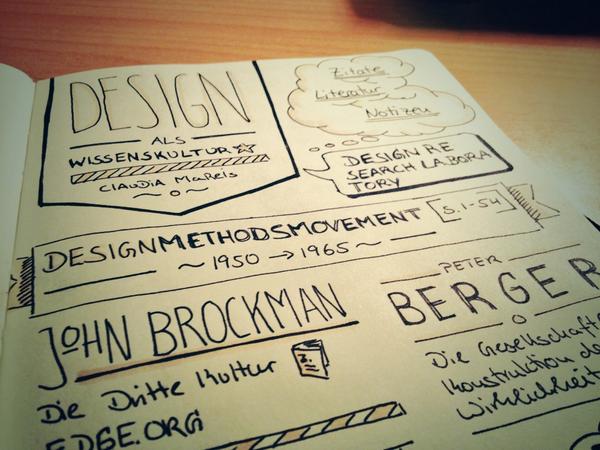 DESIGN
ALS
WISSENSKULTUR
CLAUDIA MAREIS
Zitate
Literatur
Notizen
DESIGN RE
SEARCH LABORA
TORY
DESIGNMETHODSMOVEMENT [S.1-54]
~ 1950 → 1965 ~
JOHN BROCKMAN
Die Dritte Kultur
EDGE.ORG
PETER
BERGER
Die Gesellschaftl
Konstruktion de
Wirklichkeit